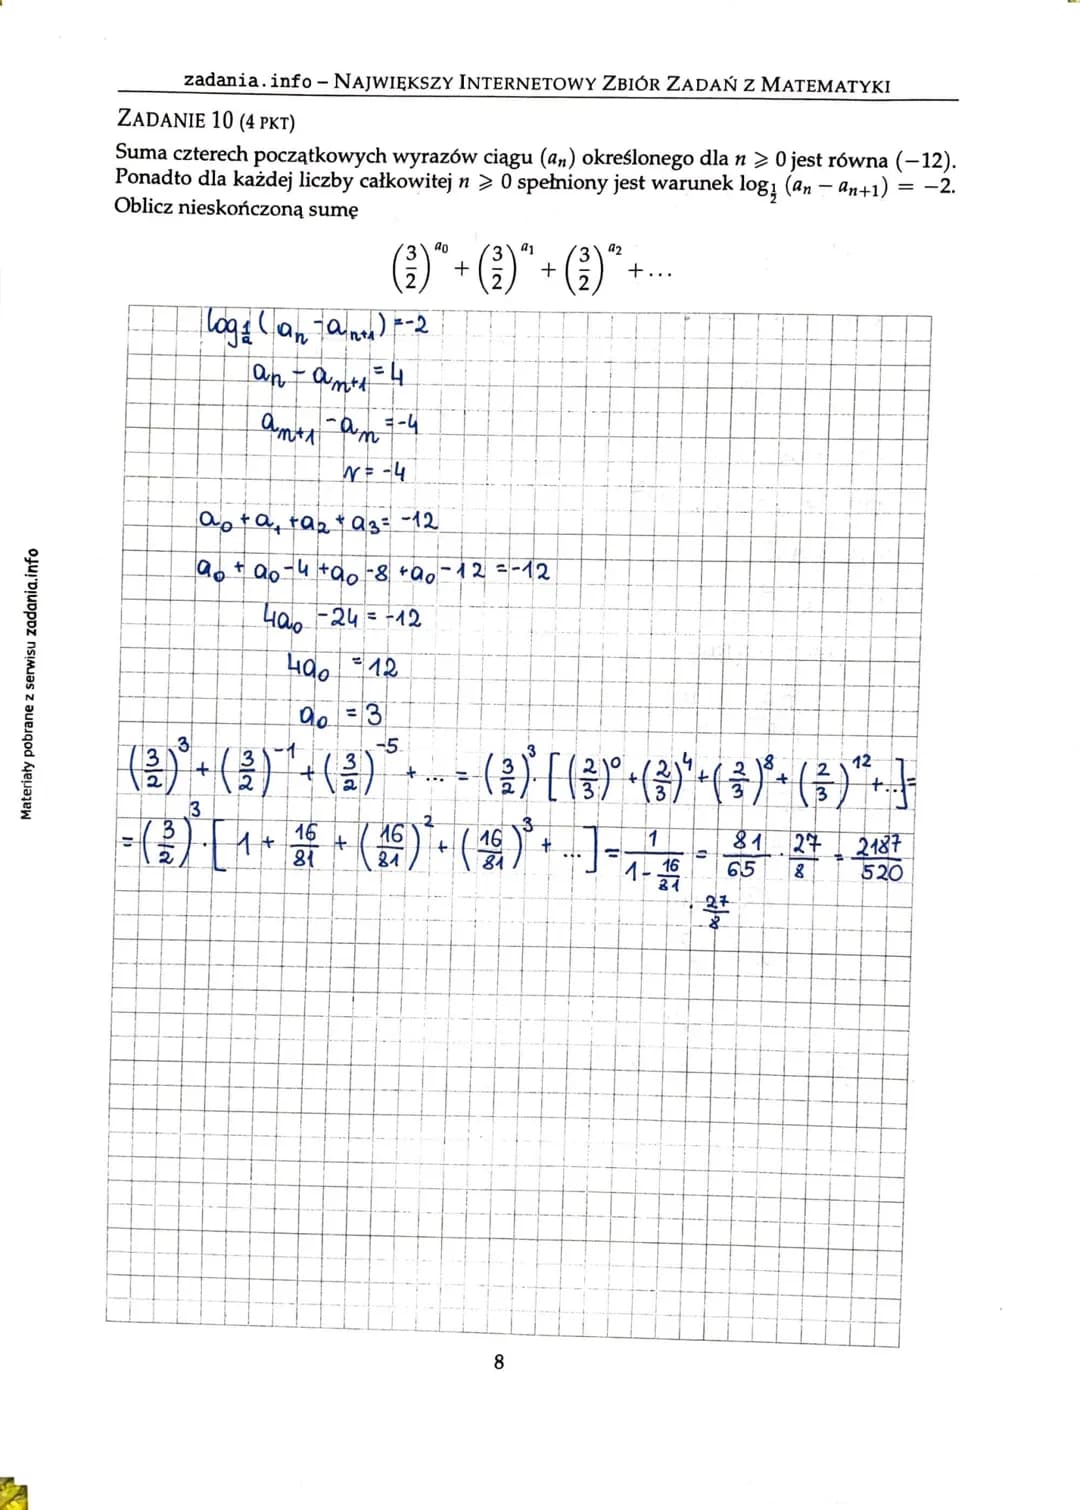 zadania.info – NAJWIĘKSZY INTERNETOWY ZBIÓR ZADAŃ Z MATEMATYKI
ZADANIE 10 (4 PKT)
Suma czterech początkowych wyrazów ciągu (aₙ) określonego dla n ⩾ 0 jest równa (−12).
Ponadto dla każdej liczby całkowitej n ⩾ 0 spełniony jest warunek log_{1/2} (aₙ − aₙ₊₁) = −2.
Oblicz nieskończoną sumę
(3/2)^{a₀} + (3/2)^{a₁} + (3/2)^{a₂} + ...
log_{1/2} (aₙ - aₙ₊₁) = -2
aₙ - aₙ₊₁ = 4
aₙ₊₁ - aₙ = -4
r = -4
a₀ + a₁ + a₂ + a₃ = -12
a₀ + a₀ - 4 + a₀ - 8 + a₀ - 12 = -12
4a₀ - 24 = -12
4a₀ = 12
a₀ = 3
(3/2)^3 + (3/2)^{-1} + (3/2)^{-5} + ... = (3/2)^3 · [(2/3)^0 + (2/3)^4 + (2/3)^8 + (2/3)^{12} + ...] =
= (3/2)^3 · [1 + 16/81 + (16/81)^2 + (16/81)^3 + ...] = 1/(1 - 16/81) = 81/65 · 27/8 = 2187/520
· 27/8
8
Materiały pobrane z serwisu zadania.info